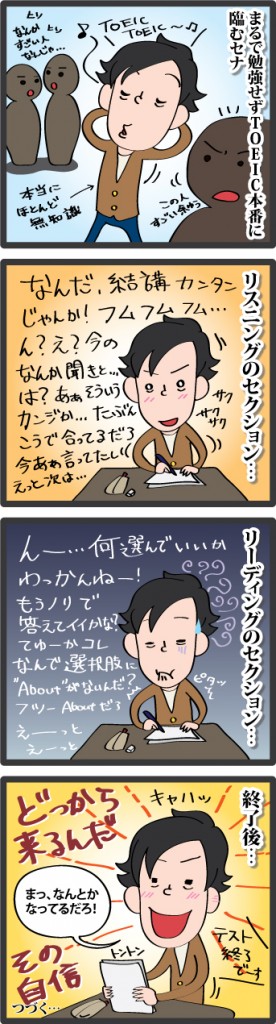 まるで勉強せずTOEIC本番に
臨むセナ
TOEIC
TOEIC〜♪
ヒソ
ヒソ
なんか
すごい人
なんじゃ…
本当に
ほとんど
無知識
この人
すごい余ゆう
リスニングのセクション…
なんだ、結構カンタン
じゃんか！フムフムフム…
ん？え？今の
なんか聞きと…
は？あぁそういう
カンジか…たぶん
こうで合ってるだろ
今あぁ言ってたし
えっと次は…
サク
サク
サク
リーディングのセクション…
んー…何選んでいいか
わっかんねー！
もうノリで
答えてイイかな？
てゆーかコレ
なんで選択肢に
"About"がないんだ？
フツーAboutだろ
えーーっと
えーっと
ピタッ
終了後…
キャハッ
どっから
来るんだ
その
自信
まっ、なんとか
なってるだろ！
トントン
テスト
終了
です
つづく…